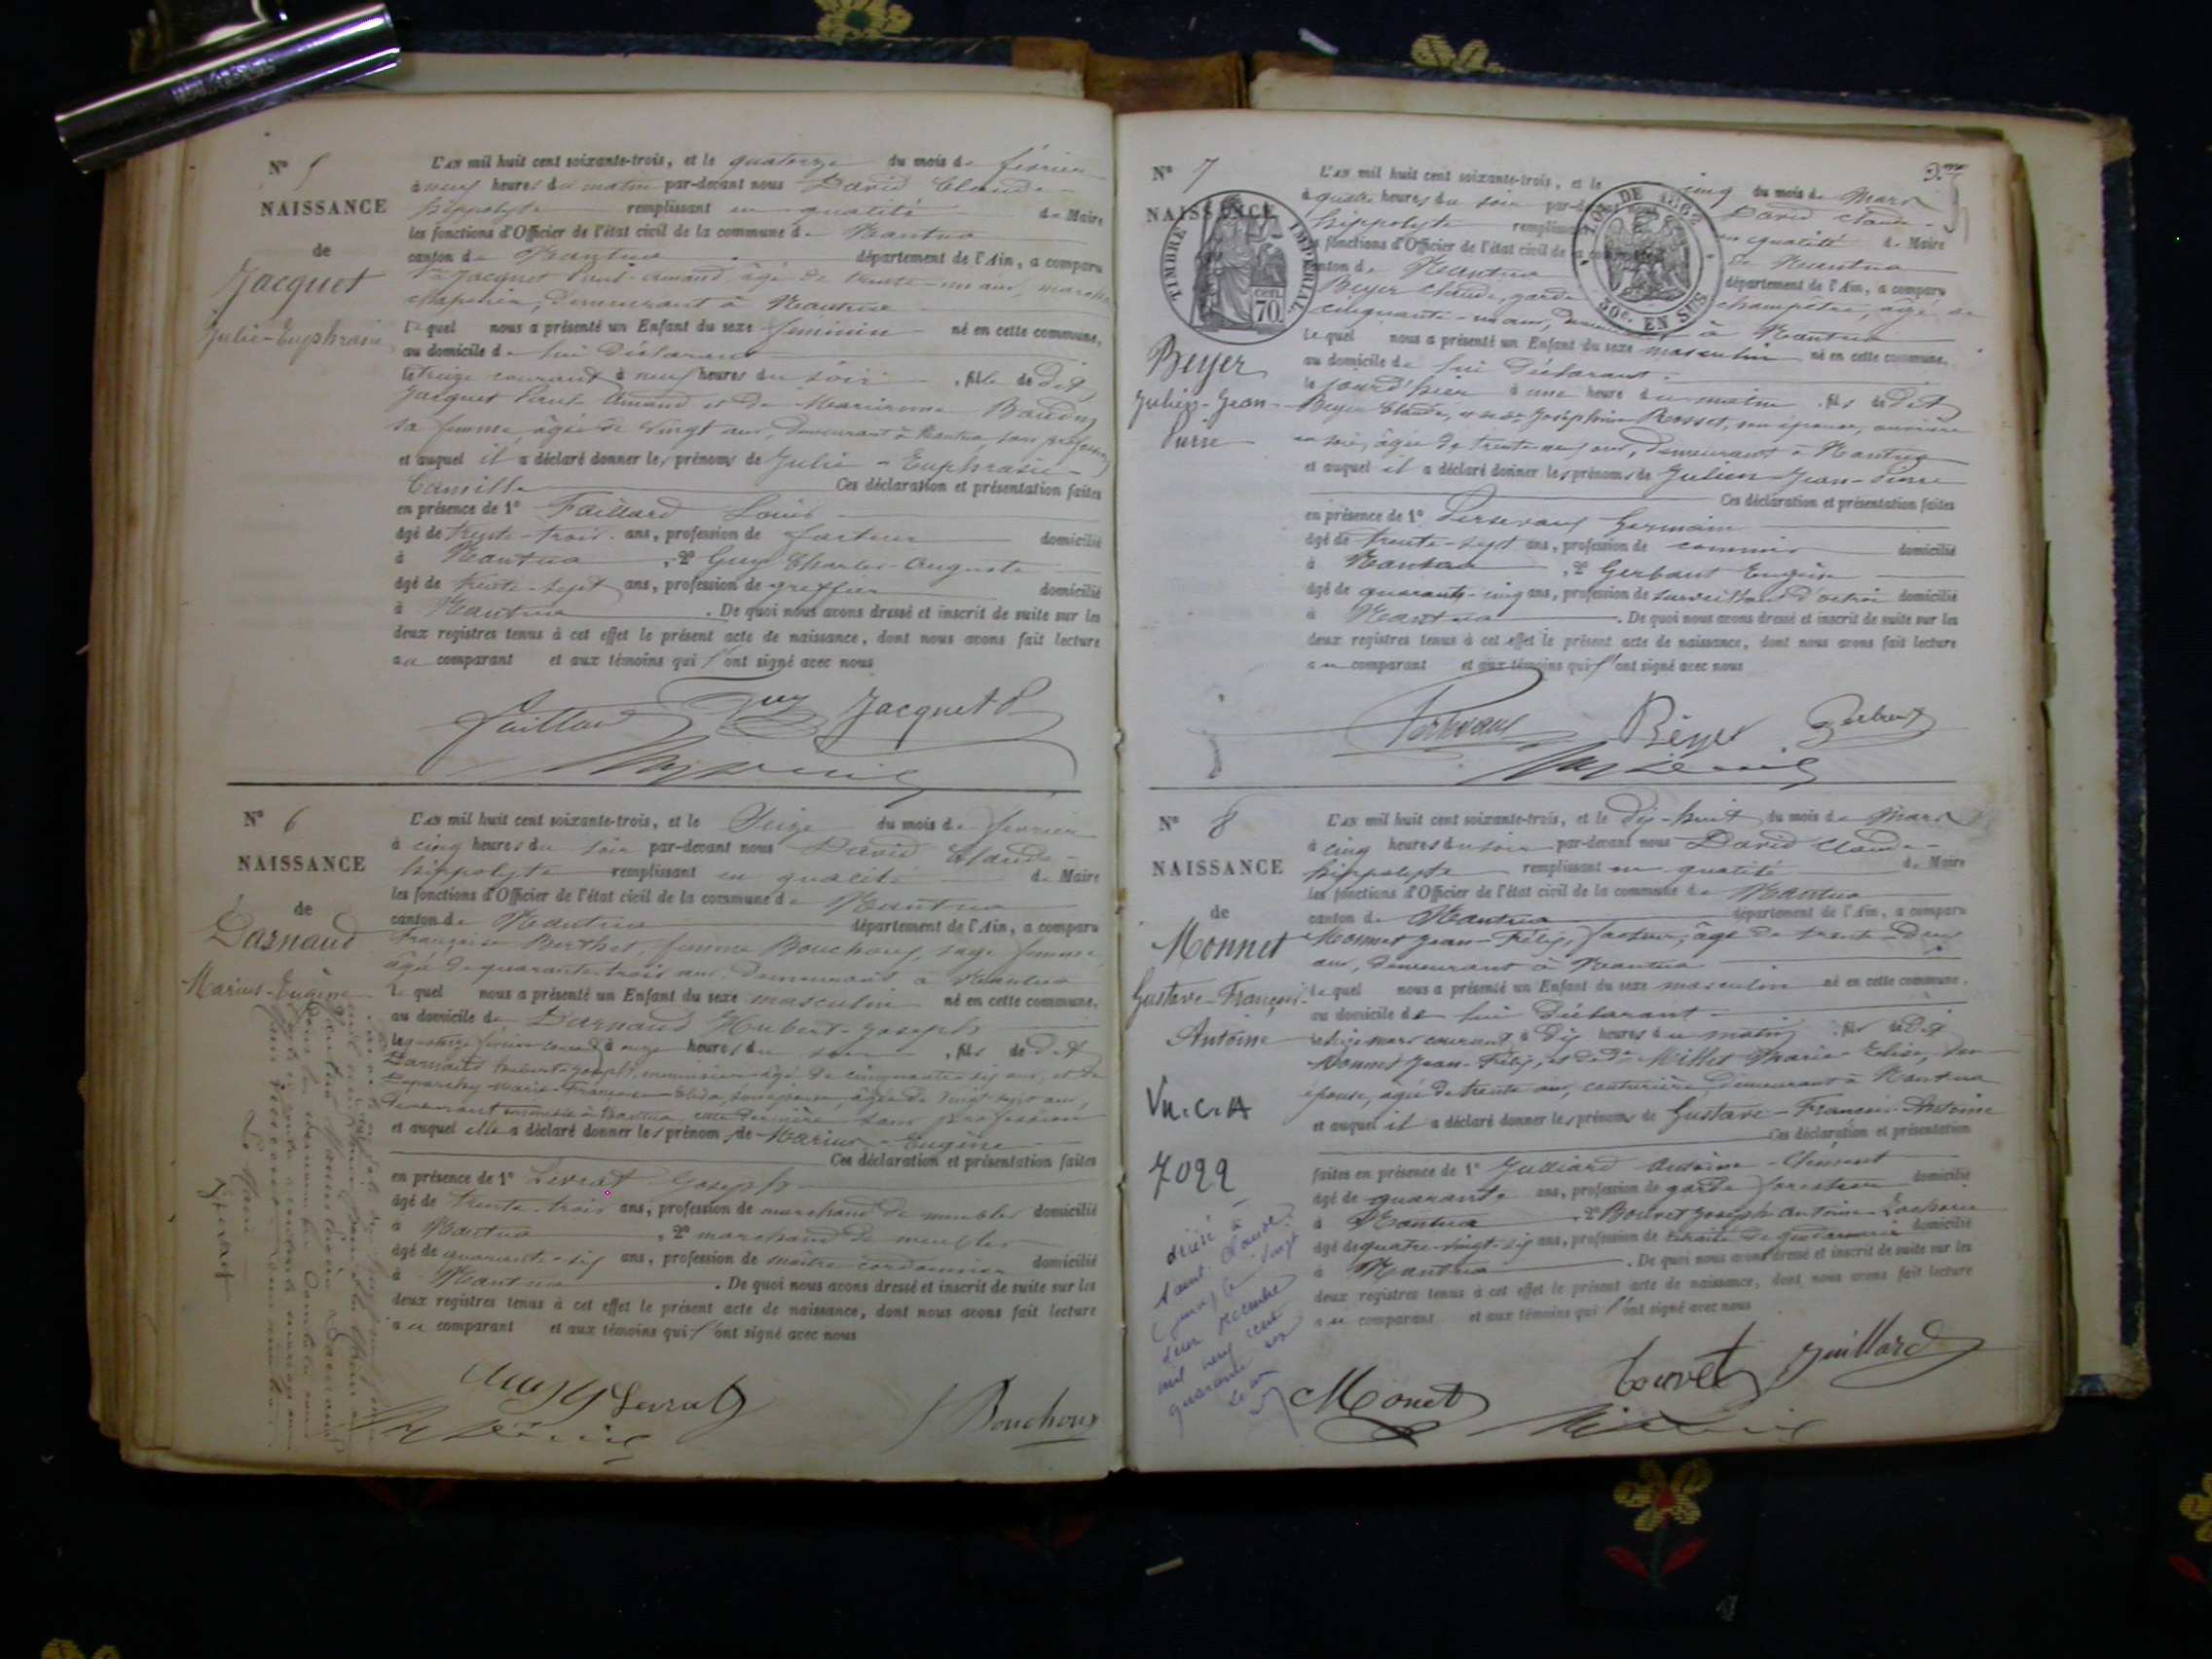 N° 5
NAISSANCE
de
Jacquet
Julie-Euphrasie
L'AN mil huit cent soixante-trois, et le quatorze du mois de février
à neuf heures du matin par-devant nous David Claude-
hippolyte remplissant en qualité de Maire
les fonctions d'Officier de l'état civil de la commune de Nantua
canton de Nantua département de l'Ain, a comparu
Jacquet Paul-Amand, âgé de trente-un ans,
demeurant à Nantua
lequel nous a présenté un Enfant du sexe féminin né en cette commune,
au domicile de lui déclarant
le treize courant à neuf heures du soir, fille de dit
Jacquet Paul Amand et de Marianne
sa femme, âgée de vingt ans, demeurant à Nantua, sans profession
et auquel il a déclaré donner les prénoms de Julie-Euphrasie-
Camille Ces déclaration et présentation faites
en présence de 1° Faillard Louis
âgé de trente-trois ans, profession de facteur domicilié
à Nantua, 2° Guy Charles-Auguste
âgé de trente-sept ans, profession de greffier domicilié
à Nantua. De quoi nous avons dressé et inscrit de suite sur les
deux registres tenus à cet effet le présent acte de naissance, dont nous avons fait lecture
au comparant et aux témoins qui l'ont signé avec nous
Guy Jacquet P
N° 6
NAISSANCE
de
Darnaud
Marius-Eugène
L'AN mil huit cent soixante-trois, et le Seize du mois de février
à cinq heures du soir par-devant nous David Claude-
hippolyte remplissant en qualité de Maire
les fonctions d'Officier de l'état civil de la commune de Nantua
canton de Nantua département de l'Ain, a comparu
Françoise Berthet, femme Bouchoux, sage femme,
âgée de quarante-trois ans, demeurant à Nantua
lequel nous a présenté un Enfant du sexe masculin né en cette commune,
au domicile de Darnaud Hubert-Joseph
le quatorze février courant à onze heures du soir, fils de dit
Darnaud Hubert-Joseph, menuisier âgé de cinquante-six ans, et de
Marie-Françoise son épouse, âgée de vingt sept ans,
demeurant ensemble à Nantua, cette dernière sans profession
et auquel elle a déclaré donner les prénoms de Marius-Eugène
Ces déclaration et présentation faites
en présence de 1° Levrat Joseph
âgé de trente-trois ans, profession de marchand de meubles domicilié
à Nantua, 2° marchand de meubles
âgé de quarante-six ans, profession de maître cordonnier domicilié
à Nantua. De quoi nous avons dressé et inscrit de suite sur les
deux registres tenus à cet effet le présent acte de naissance, dont nous avons fait lecture
au comparant et aux témoins qui l'ont signé avec nous
Levrat
f Bouchoux
Le Maire
N° 7
NAISSANCE
TIMBRE IMPÉRIAL
CEN. 70
LOI DE 1862
30c. EN SUS
Beyer
Julien-Jean-
Pierre
L'AN mil huit cent soixante-trois, et le cinq du mois de Mars
à quatre heures du soir David Claude-
hippolyte en qualité de Maire
les fonctions d'Officier de l'état civil de la commune de Nantua
canton de Nantua département de l'Ain, a comparu
Beyer Claude, garde champêtre, âgé de
cinquante-un ans, demeurant à Nantua
lequel nous a présenté un Enfant du sexe masculin né en cette commune,
au domicile de lui déclarant
le jourd'hier à une heure du matin, fils de dit
Beyer Claude, et de Joséphine Rosset, son épouse, ouvrière
en soie, âgée de trente-neuf ans, demeurant à Nantua
et auquel il a déclaré donner les prénoms de Julien-Jean-Pierre
Ces déclaration et présentation faites
en présence de 1° Germain
âgé de trente-sept ans, profession de commis domicilié
à Nantua, 2° Gerbaut Eugène
âgé de quarante-cinq ans, profession de surveillant d'octroi domicilié
à Nantua. De quoi nous avons dressé et inscrit de suite sur les
deux registres tenus à cet effet le présent acte de naissance, dont nous avons fait lecture
au comparant et aux témoins qui l'ont signé avec nous
Béyer
N° 8
NAISSANCE
de
Monnet
Gustave-François-
Antoine
L'AN mil huit cent soixante-trois, et le dix-huit du mois de Mars
à cinq heures du soir par-devant nous David Claude-
hippolyte remplissant en qualité de Maire
les fonctions d'Officier de l'état civil de la commune de Nantua
canton de Nantua département de l'Ain, a comparu
Monnet Jean-Félix, facteur, âgé de trente-deux
ans, demeurant à Nantua
lequel nous a présenté un Enfant du sexe masculin né en cette commune,
au domicile de lui déclarant
le seize mars courant à dix heures du matin, fils de dit
Monnet Jean-Félix, et de Millet Marie Elise, son
épouse, âgée de trente ans, couturière, demeurant à Nantua
et auquel il a déclaré donner les prénoms de Gustave-François-Antoine
Ces déclaration et présentation
faites en présence de 1° Julliard Antoine-Clément
âgé de quarante ans, profession de garde forestier domicilié
à Nantua, 2° Bouvet Joseph-Antoine
âgé de quatre-vingt-six ans, profession de retraité de gendarmerie domicilié
à Nantua. De quoi nous avons dressé et inscrit de suite sur les
deux registres tenus à cet effet le présent acte de naissance, dont nous avons fait lecture
au comparant et aux témoins qui l'ont signé avec nous
Vu.C.A
7022
décédé à
Saint Claude
(Jura) le vingt
deux décembre
mil neuf cent
quarante
Monet
Bouvet
Juillard